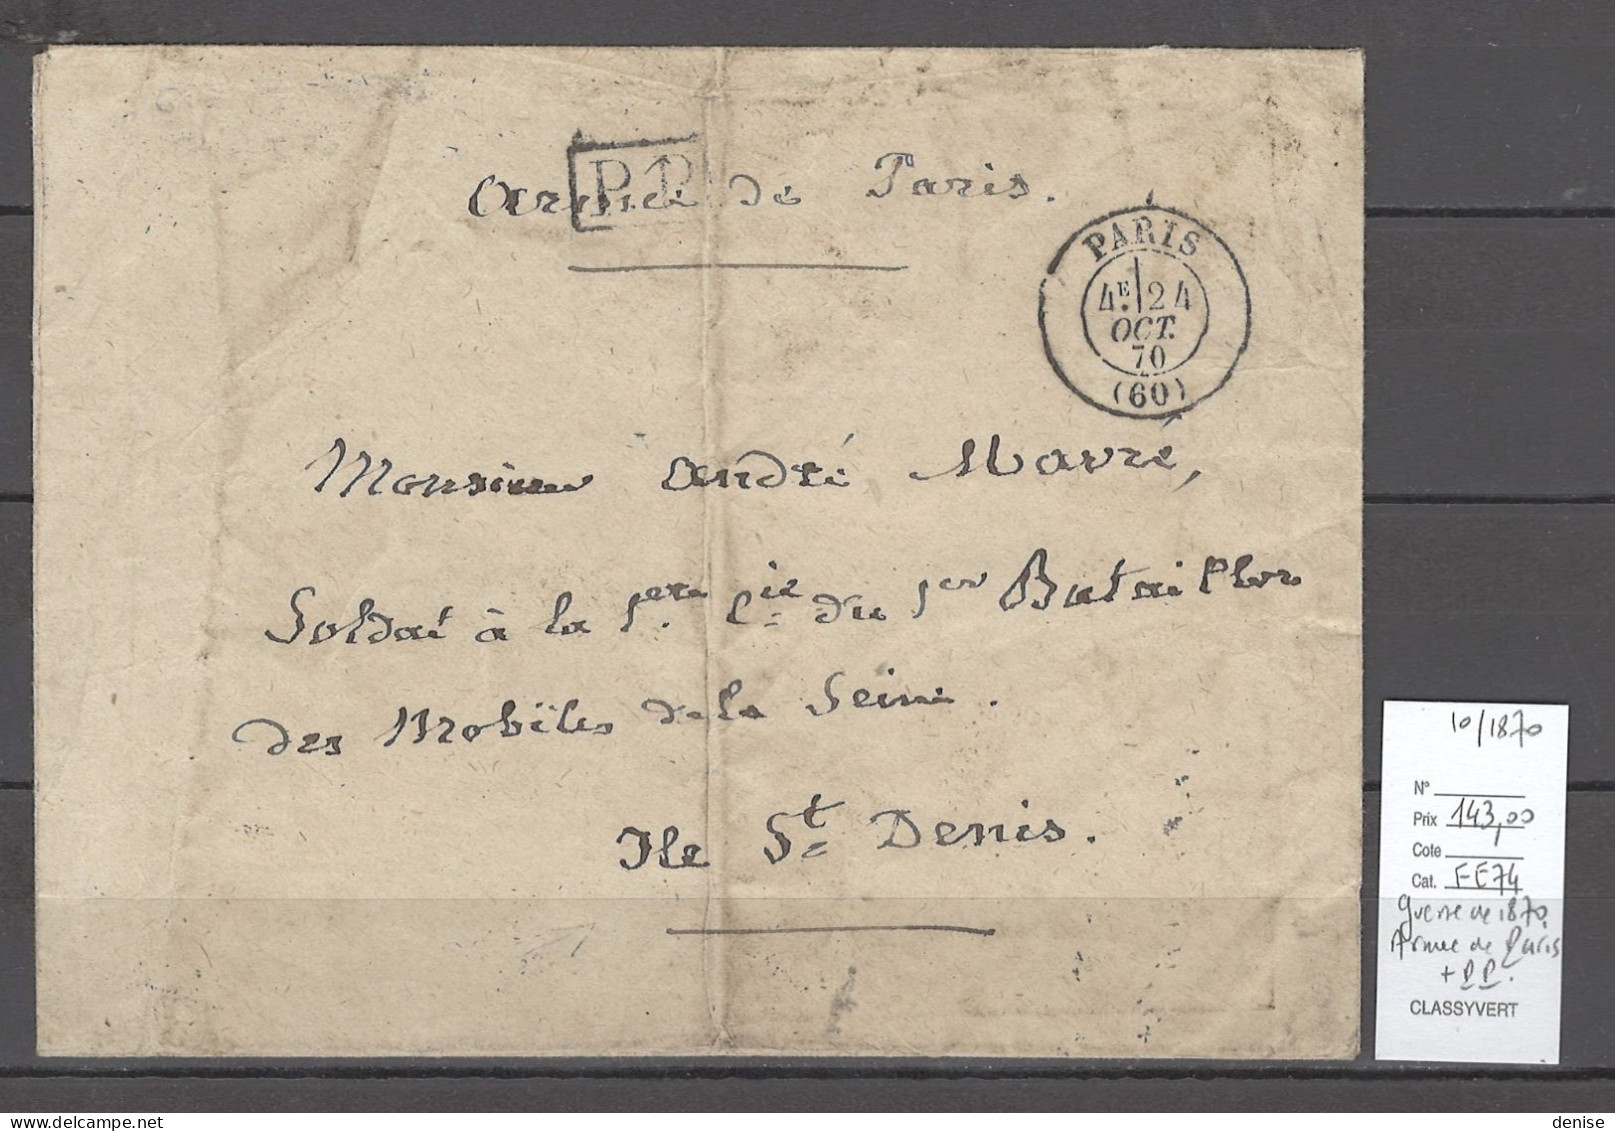 P.P.
Armée de Paris.
PARIS
4E 24
OCT.
70
(60)
Monsieur André Mavré,
Soldat à la 1ère Cie du 1er Bataillon
des Mobiles de la Seine.
Ile St Denis.
10/1870
N°
Prix 143,00
Cote
Cat. FE74
Guerre de 1870
Armée de Paris
+ PP.
CLASSYVERT
denise